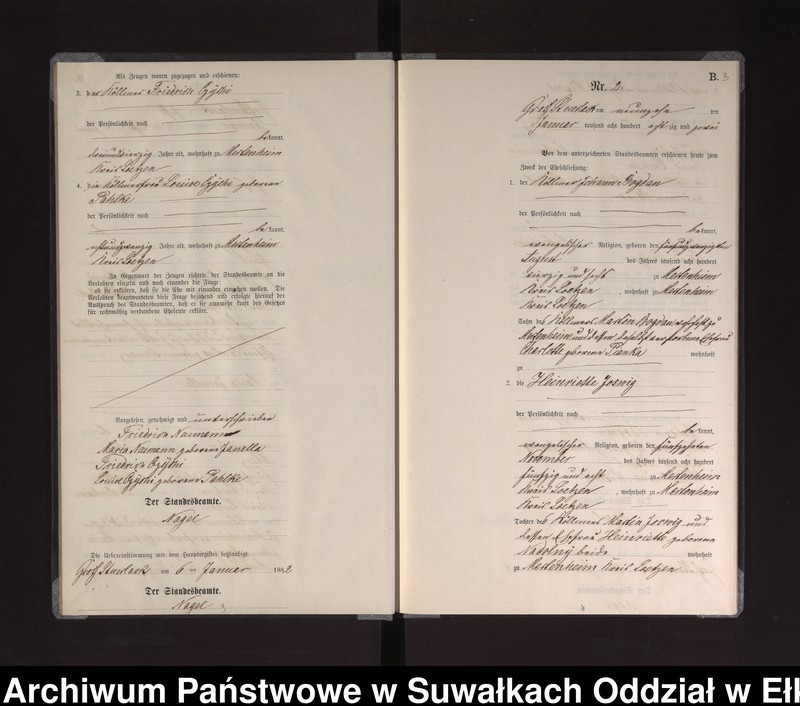 Als Zeugen waren zugezogen und erschienen:
3. der Köllmer Friedrich Czÿthi
der Persönlichkeit nach
bekannt,
Jahre alt, wohnhaft zu Mertenheim
Kreis Loetzen
4. Die Köllmerfrau Louise Czÿthi geborene
Pahlke
der Persönlichkeit nach
bekannt,
Jahre alt, wohnhaft zu Mertenheim
Kreis Loetzen
In Gegenwart der Zeugen richtete der Standesbeamte an die
Verlobten einzeln und nach einander die Frage:
ob sie erklären, daß sie die Ehe mit einander eingehen wollen. Die
Verlobten beantworteten diese Frage bejahend und erfolgte hierauf der
Ausspruch des Standesbeamten, daß er sie nunmehr kraft des Gesetzes
für rechtmäßig verbundene Eheleute erkläre.
Vorgelesen, genehmigt und unterschrieben
Friedrich Naumann
Maria Naumann geborene Zanella
Friedrich Czÿthi
Louise Czÿthi geborene Pahlke
Der Standesbeamte.
Nagel
Die Uebereinstimmung mit dem Hauptregister beglaubigt.
Groß Stuerlack am 6 ten Januar 1882
Der Standesbeamte.
Nagel
B. 3
Nr. 2.
Groß Stuerlack am neunzehn ten
Januar tausend acht hundert achtzig und zwei
Vor dem unterzeichneten Standesbeamten erschienen heute zum
Zweck der Eheschließung:
1. der Köllmer Johann Bogdan
der Persönlichkeit nach
bekannt,
evangelischer Religion, geboren den fünfundzwanzigsten
August des Jahres tausend acht hundert
vierzig und sechs zu Mertenheim
Kreis Loetzen, wohnhaft zu Mertenheim
Kreis Loetzen
Sohn des Köllmers Martin Bogdan wohnhaft zu
Mertenheim und dessen daselbst verstorbene Ehefrau
Charlotte geborene Pianka wohnhaft
zu
2. die Heinriette Joswig
der Persönlichkeit nach
bekannt,
evangelischer Religion, geboren den fünfzehnten
November des Jahres tausend acht hundert
fünfzig und acht zu Mertenheim
Kreis Loetzen, wohnhaft zu Mertenheim
Kreis Loetzen
Tochter des Köllmers Martin Joswig und
dessen Ehefrau Heinriette geborene
Nadolnÿ beide wohnhaft
zu Mertenheim Kreis Loetzen
4
Archiwum Państwowe w Suwałkach Oddział w Ełk